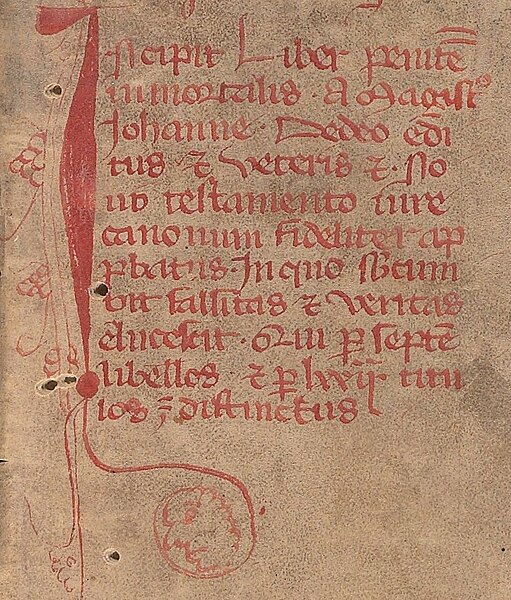 Incipit Liber penitē
inmortalis · A Magistº
Johanne · Dedeo edi
tus ⁊ veteris ⁊ · No
uo testamento iure
canonum fideliter ap
ꝓbatus · In quo sucum
bit falsitas ⁊ veritas
elucescit · Qui ꝑ septē
libellos ⁊ ꝑ titu
los distinctus